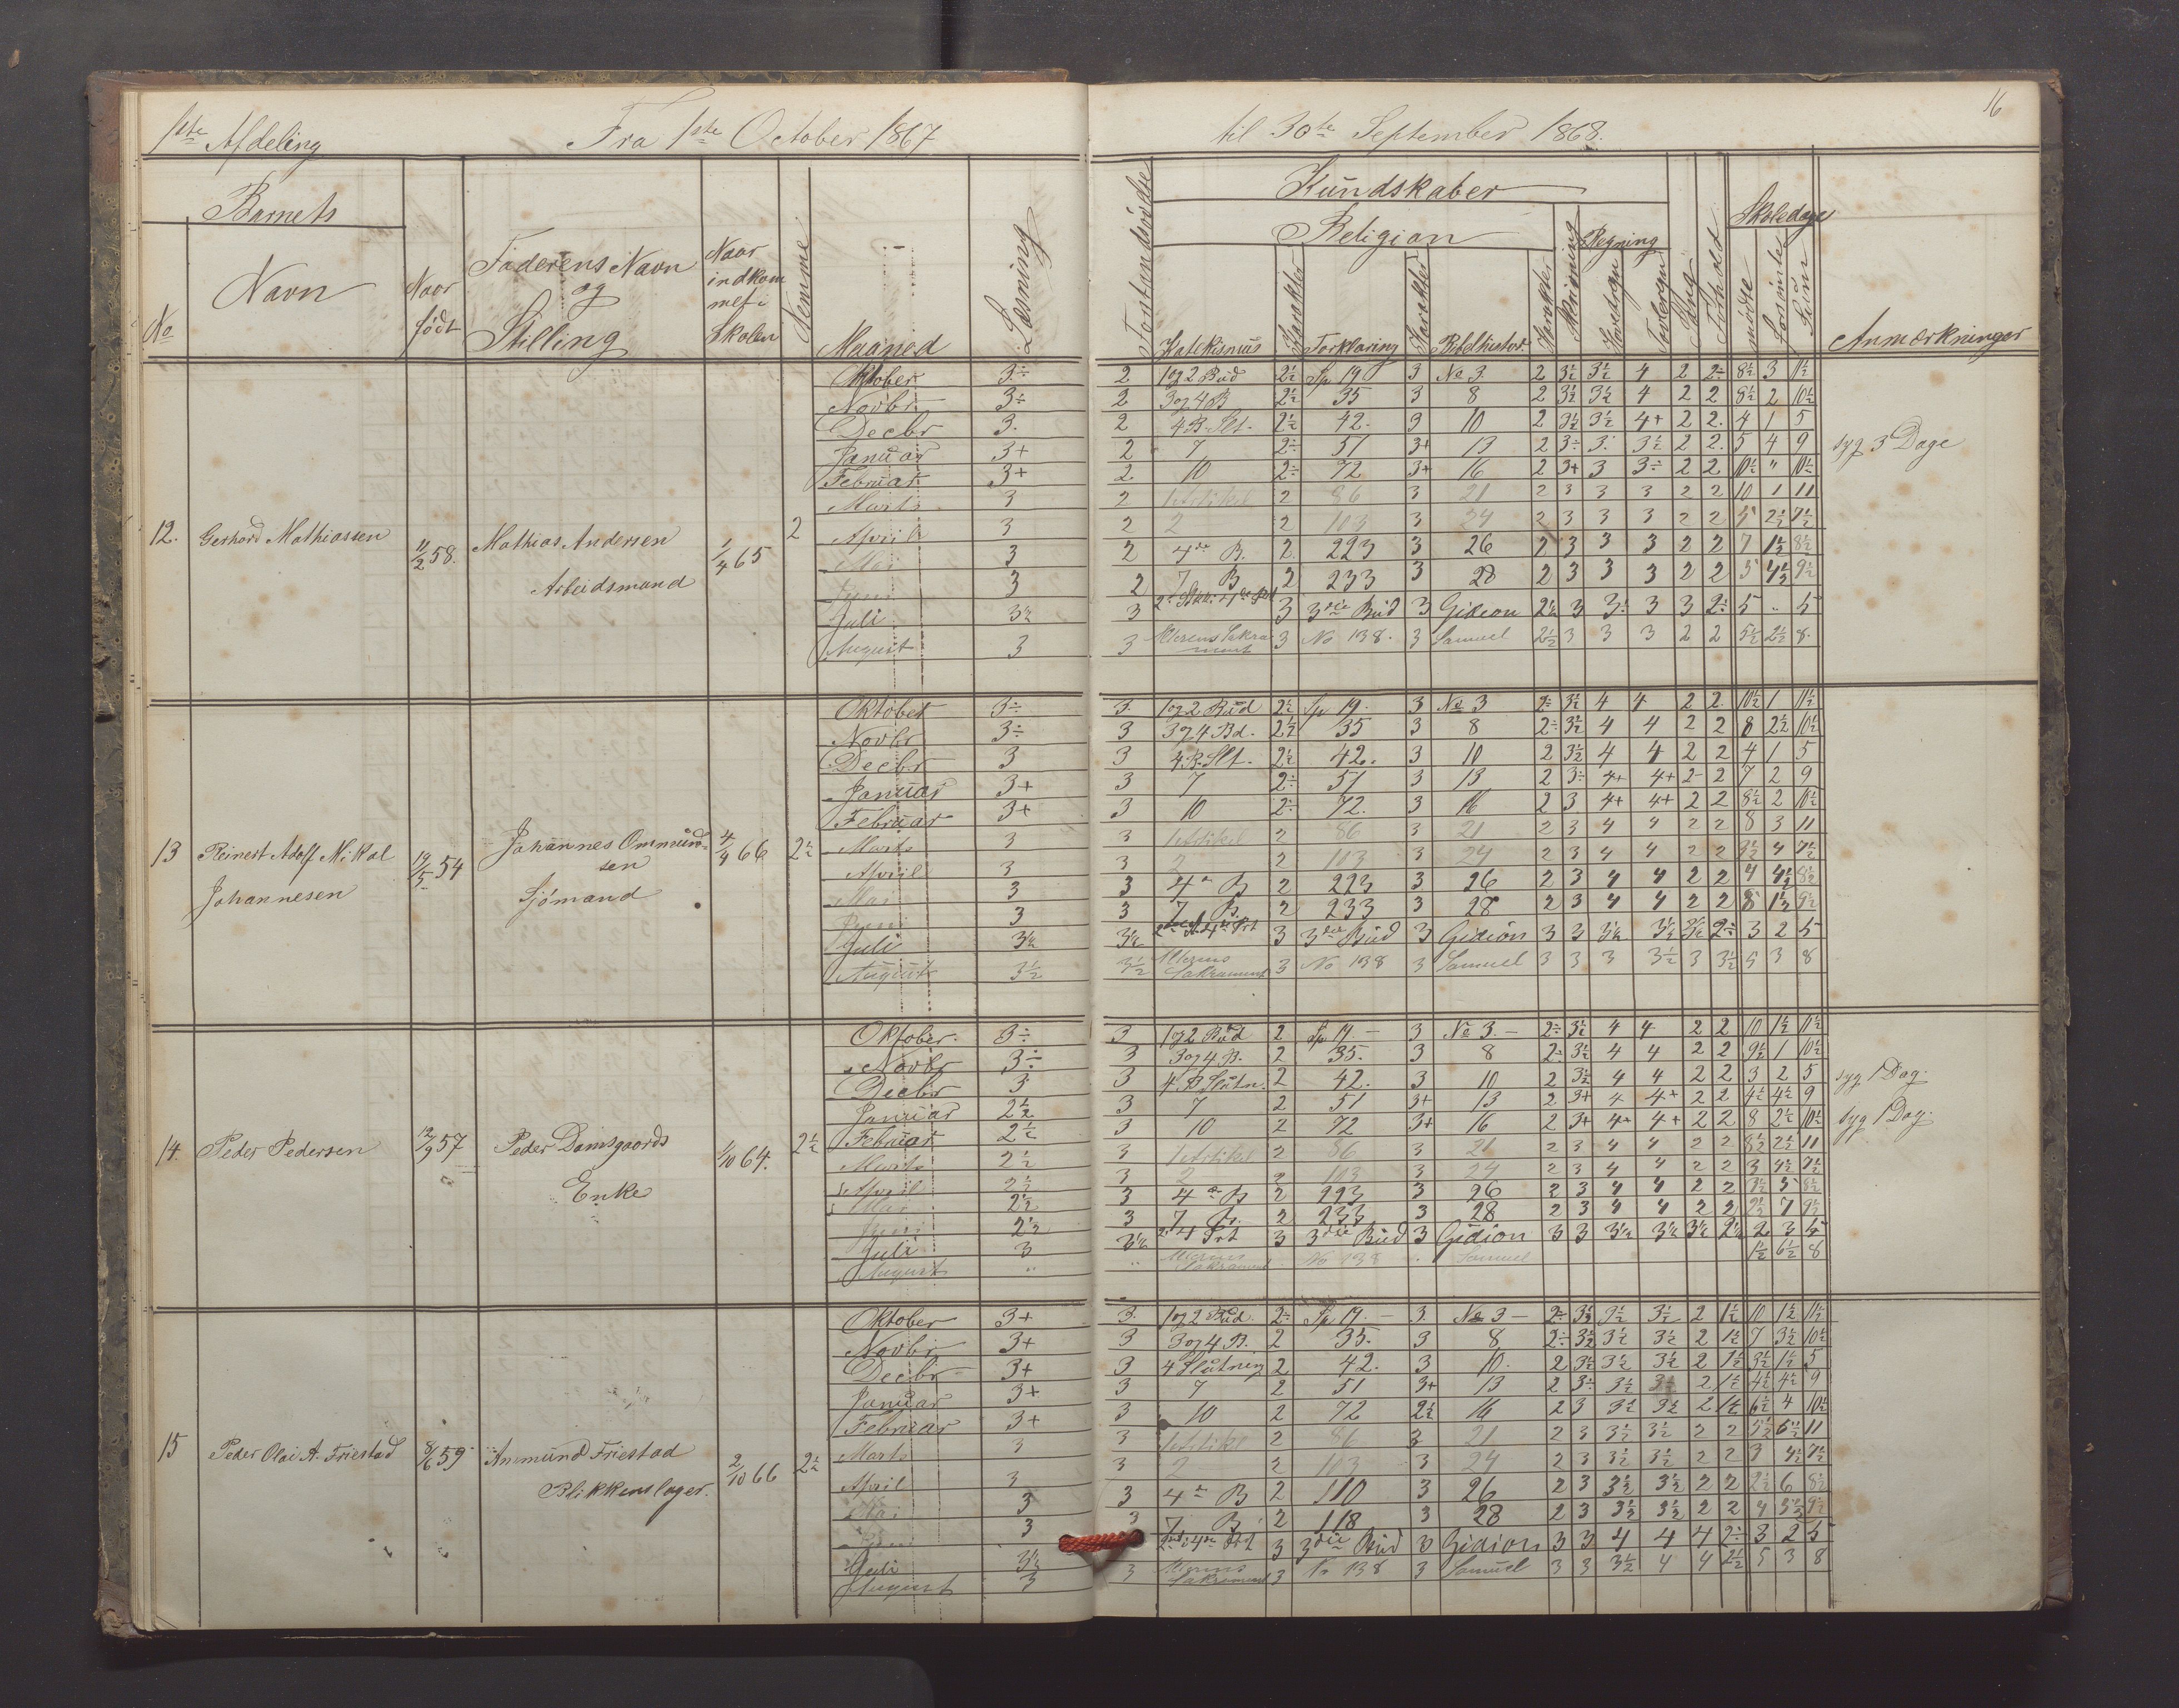 16
1ste Afdeling Fra 1ste October 1867 til 30te September 1868.
Barnets
No Navn
Naar født
Faderens Navn og Stilling
Naar indkommet i Skolen
Nemme
Maaned
Læsning
Kundskaber
Religion
Katekismus Karakter Forklaring Karakter Bibelhistor. Karakter
Skrivning
Regning
Sang
Forhold
Skoledage
mødte forsømte
Anmærkninger
12. Gerhard Mathiassen 58. Mathias Andersen Arbeidsmand 1/4 65 2
Oktober 3÷ 2 1 og 2 Bud 2½ Sp. 19 3 No 3. 2 3½ 3½ 4 2 2÷ 8½ 3 11½
Novbr 3÷ 2 3 og 4 B 2½ 35 3 8 2 3½ 3½ 4 2 2 8½ 2 10½
Decbr 3. 2 4 B. Slt. 2½ 42. 3 10 2 3½ 3½ 4+ 2 2. 4 1 5
Januar 3+ 2 7 2÷ 51 3+ 13 2 3÷ 3. 3½ 2 2. 5 4 9 syg 3 Dage
Februar 3+ 2 10 2÷ 72 3+ 16 2 3+ 3 3÷ 2 2 10½ " 10½
Marts 3 2 1 Artikel 2 86 3 21 2 3 3 3 2 2 10 1 11
April 3 2 2 2 103 3 24 2 3 3 3 2 2 5 2½ 7½
Mai 3 2 4de B. 2 223 3 26 2 3 3 3 2 2 7 1½ 8½
Juni 3 2 7 B 2 233 3 28 2 3 3 3 2 2 5 4½ 9½
Juli 3½ 3 3 3die Bud 3 Gideon 2½ 3 3÷ 3 3 2÷ 5 .. 5
August 3 3 Alterens Sakrament 3 No 138. 3 Samuel 2½ 3 3 3 2 2 5½ 2½ 8.
13 Reinert Adolf Nikal Johannesen 19/5 54 Johannes Ommundsen Sjømand 4/4 66 2½
Oktober 3÷ 3. 1 og 2 Bud 2½ Sp 19. 3 No 3 2÷ 3½ 4 4 2 2. 10½ 1 11½
Novbr 3÷ 3 3 og 4 Bd. 2½ 35 3 8 2÷ 3½ 4 4 2 2 8 2½ 10½
Decbr 3 3 4 B. Slt. 2½ 42. 3 10 2 3½ 4 4 2 2 4 1 5
Januar 3+ 3 7 2÷ 51 3 13 2 3÷ 4+ 4+ 2 2 7 2 9
Februar 3+ 3 10 2÷ 72. 3 16 2 3 4+ 4+ 2 2 8½ 2 10½
Marts 3 3 1 Artikel 2 86 3 21 2 3 4 4 2 2 8 3 11
April 3 3 2 2 103 3 24 2 3 4 4 2 2 3½ 4 7½
Mai 3 3 4de B 2 223 3 26 2 3 4 4 2 2 4 4½ 8½
Juni 3 3 7 B. 2 233 3 28 2 3 4 4 2 2 8 1½ 9½
Juli 3½ 3½ 3 3die Bud 3 Gideon 3 3 3½ 3½ 3½ 2÷ 3 2 5
August 3½ 3½ Alterens Sakrament 3 No 138 3 Samuel 3 3 3 3½ 3 3½ 5 3 8
14. Peder Pedersen 12/9 57 Peder Damsgaards Enke 1/10 64. 2½
Oktober. 3÷ 3 1 og 2 Bud 2 Sp 19 – 3 No 3. – 2÷ 3½ 4 4 2 2 10 1½ 11½
Novbr 3÷ 3 3 og 4 B. 2 35. 3 8 2÷ 3½ 4 4 2 2 9½ 1 10½
Decbr 3 3 4 B Slutn. 2 42. 3 10 2 3½ 4 4 2 2 3 2 5 syg 1 Dag.
Januar 2½ 3 7 2 51 3+ 13 2 3+ 4 4+ 2 2 4½ 4½ 9
Februar 2½ 3 10 2 72 3+ 16 2 3+ 4+ 4+ 2 2 8 2½ 10½ syg 1 Dag.
Marts 2½ 3 1 Artikel 2 86 3 21 2 3 4 4 2 2 8½ 2½ 11
April 2½ 3 2 2 103 3 24 2 3 4 4 2 2 3 4½ 7½
Mai 2½ 3 4de B 2 223 3 26 2 3 4 4 2 2 3½ 5 8½
Juni 2½ 3 7 B. 2 233 3 28 2 3 4 4 2 2 2½ 7 9½
Juli 3 3½ 3 3die Bud 3 Gideon 3 3 3½ 3½ 3½ 2½ 2 3 5
August " " Alterens Sakrament No 138 Samuel 1½ 6½ 8
15 Peder Olai A. Friestad 8/6 59 Ammund Friestad Blikkenslager. 2/10 66 2½
Oktober 3+ 3. 1 og 2 Bud. 2÷ Sp. 19. – 3. No 3 – 2÷ 3½ 3½ 3½ 2 1½ 10 1½ 11½
Novbr 3+ 3 3 og 4 B. 2 35. 3 8 2÷ 3½ 3½ 3½ 2 1½ 7 3½ 10½
Decbr 3+ 3 4 Slutning 2 42. 3 10. 2 3½ 3½ 3½ 2 1½ 3½ 1½ 5
Januar 3+ 3 7 2 51 3+ 13 2 3÷ 3½ 3½ 2 1½ 4½ 4½ 9
Februar 3+ 3 10 2 72 2½ 16 2 3 3½ 3½ 2 1½ 6½ 4 10½
Marts 3 3 1 Artikel 2 86 3 21 2 3 3½ 3½ 2 2 6½ 11
April 3 3 2 2 103 3 24 2 3 3½ 3½ 2 2 3 4½ 7½
Mai 3 3 4de B 2 110 3 26 2 3 3½ 3½ 2 2 2½ 6 8½
3 3 7 B 2 118 3 28 2 3 3½ 3½ 2 2 4 5½ 9½
Juli 3½ 3 3die Bud 3 Gideon 3 3 4 4 4 2÷ 3 2 5
August 3 3 Alterens Sakrament 3 No 138 3 Samuel 3 3 3½ 4 4 2½ 5 3 8